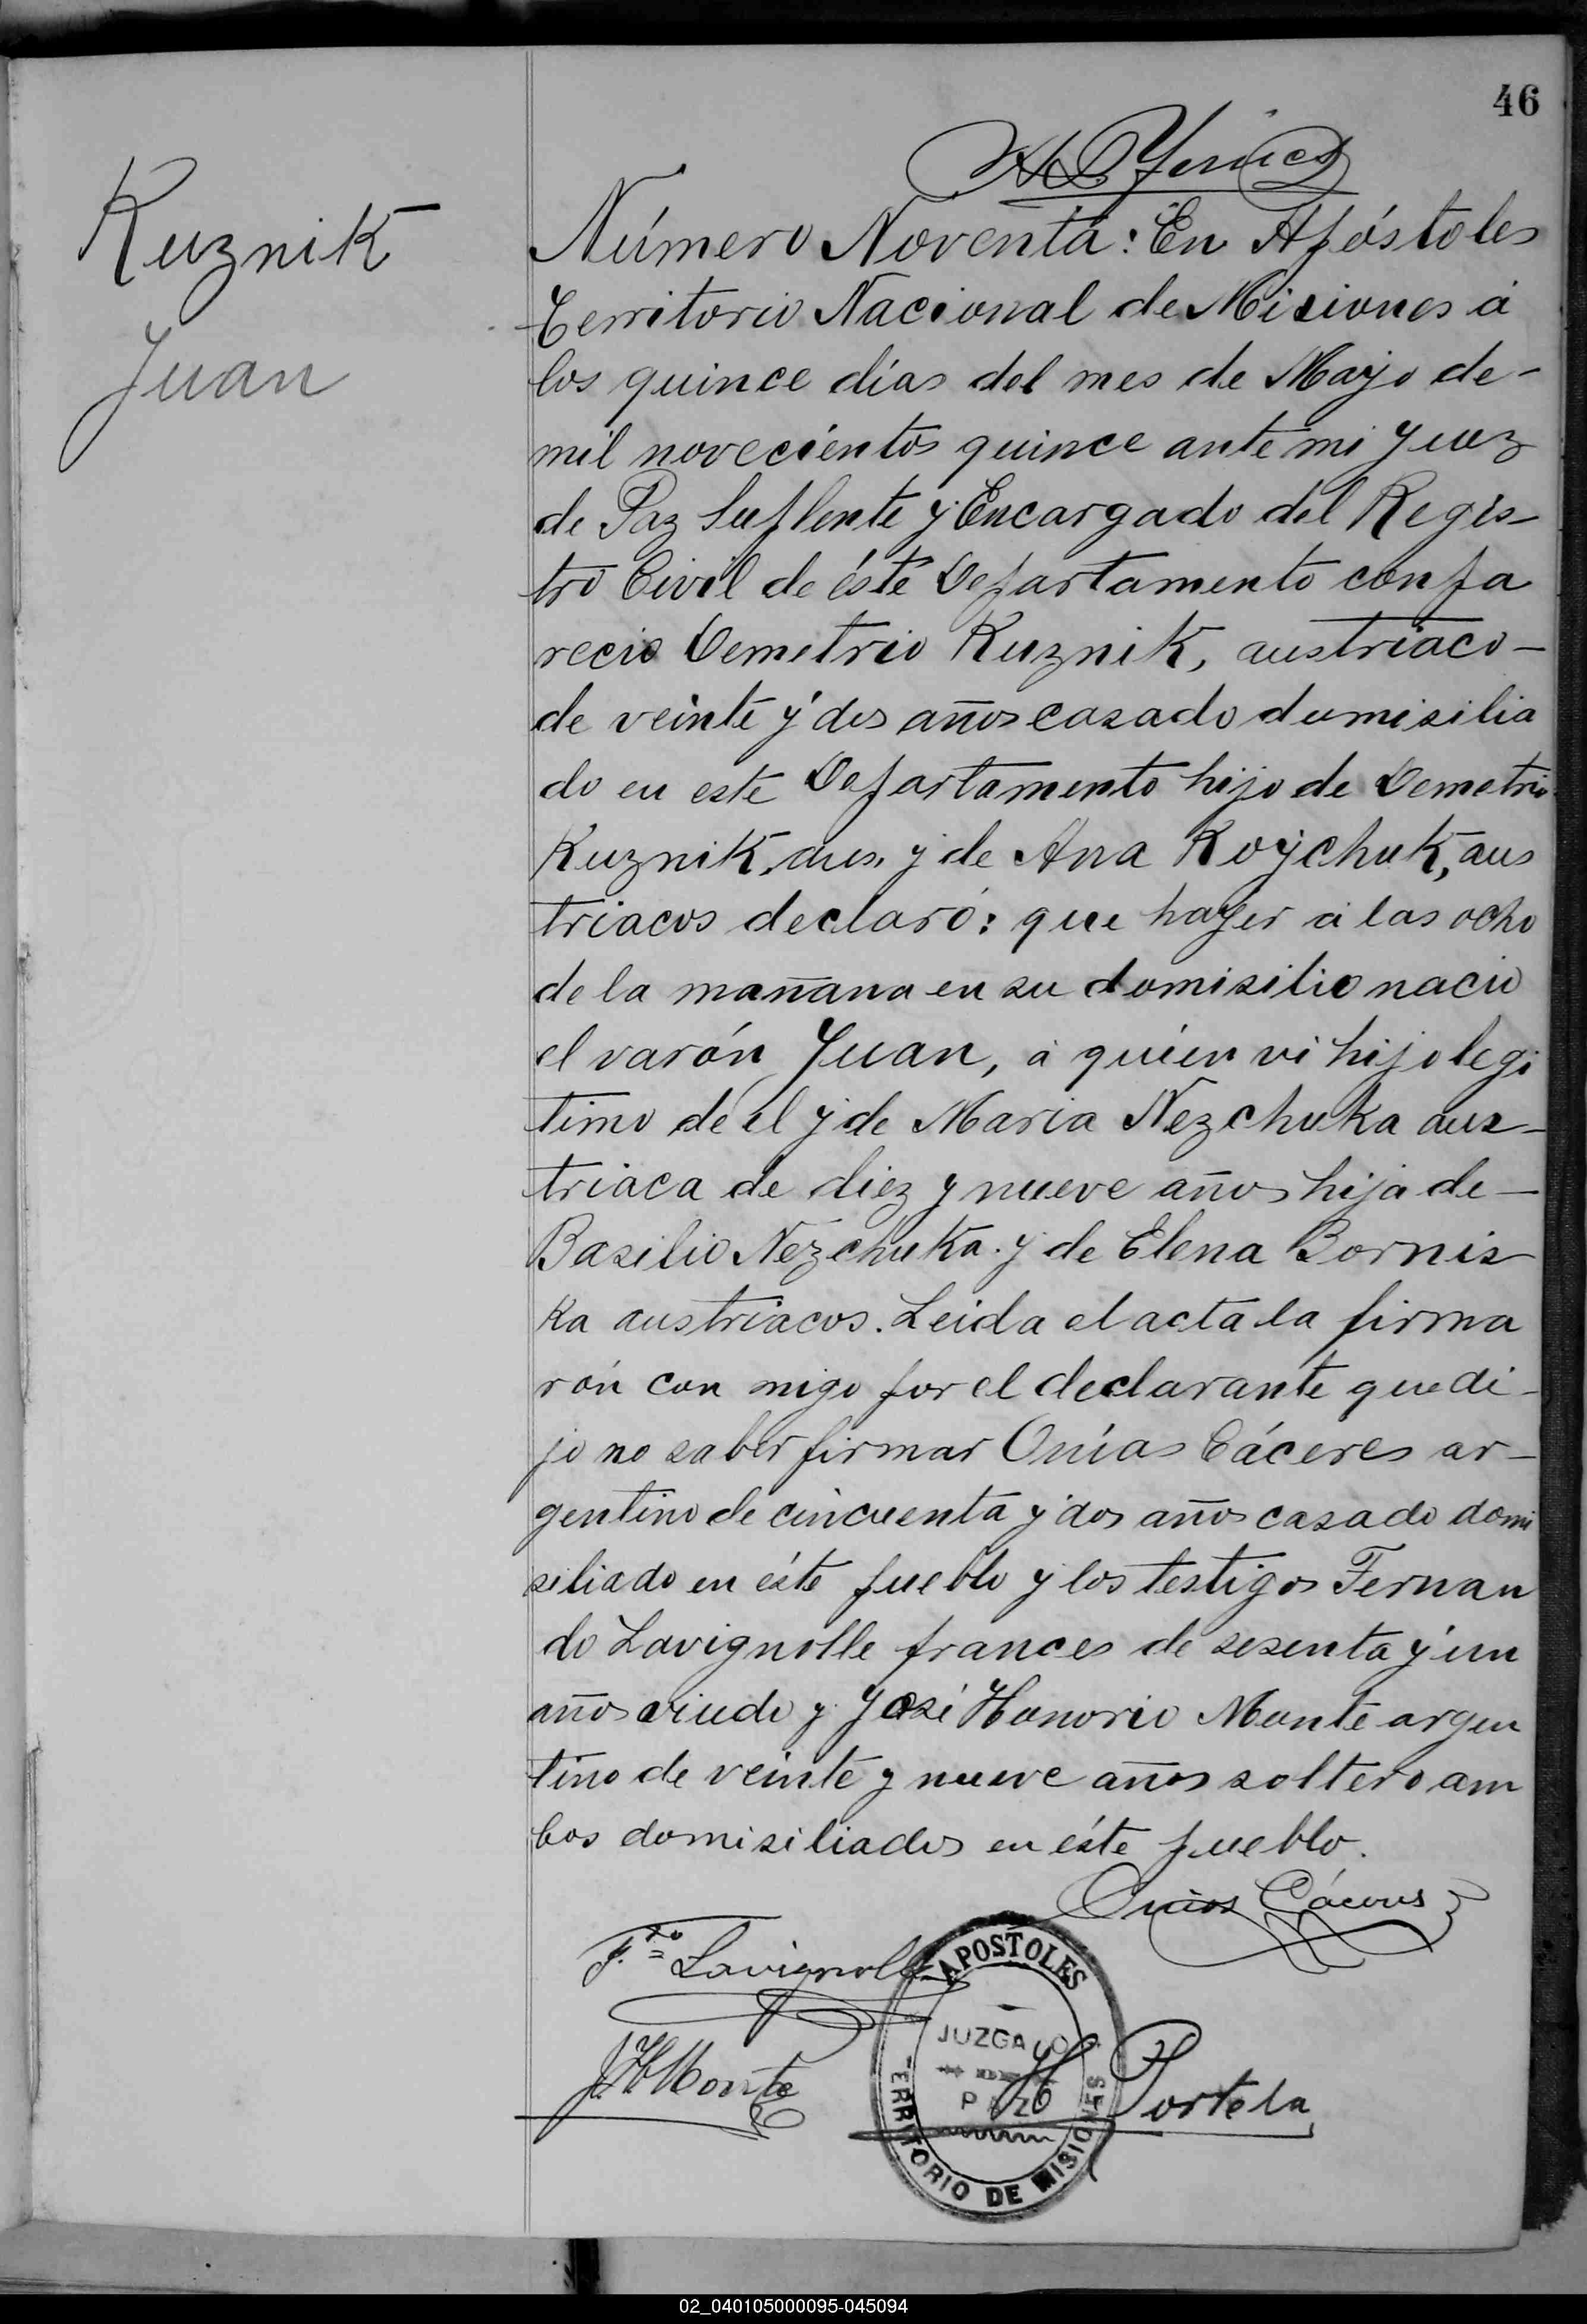 46
Kuznik
Juan
Número Noventa: En Apóstoles
Territorio Nacional de Misiones á
los quince días del mes de Mayo de-
mil novecientos quince ante mi Juez
de Paz Suplente y Encargado del Regis-
tro Civil de éste Departamento compa
recio Demetrio Kuznik, austriaco-
de veinte y dos años casado domisilia
do en este Departamento hijo de Demetrio
Kuznik, aus. y de Ana Roychuk, aus
triacos declaró: que hayer á las ocho
de la mañana en su domisilio nacio
el varón Juan, á quien vi hijo legi
timo de el y de Maria Nezchuka aus-
triaca de diez y nueve años hija de-
Basilio Nezchuka. y de Elena Bornis
ka austriacos. Leida el acta la firma
rón con migo por el declarante que di-
jo no saber firmar Onías Cáceres ar-
gentino de cincuenta y dos años casado domi
siliado en éste pueblo y los testigos Fernan
do Lavignolle frances de sesenta y un
años viudo y José Honorio Monte argen
tino de veinte y nueve años soltero am
bos domisiliados en éste pueblo.
Onías Cáceres
F.do Lavignolle
APOSTOLES
JUZGADO
DE
PAZ
TERRITORIO DE MISIONES
J H Monte
H Portela
02_040105000095-045094